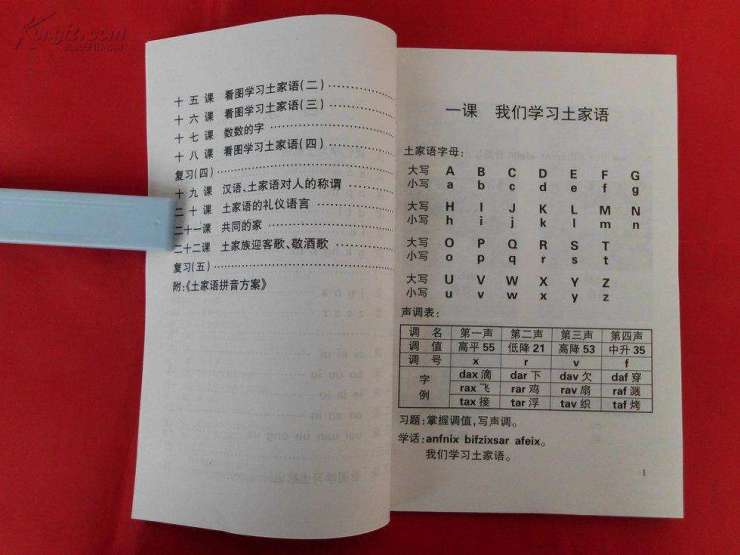 Kongfz.com
十五课 看图学习土家语(二)
十六课 看图学习土家语(三)
十七课 数数的字
十八课 看图学习土家语(四)
复习(四)
十九课 汉语、土家语对人的称谓
二十课 土家语的礼仪语言
二十一课 共同的家
二十二课 土家族迎客歌、敬酒歌
复习(五)
附:《土家语拼音方案》
一课 我们学习土家语
土家语字母:
大写 A B C D E F G
小写 a b c d e f g
大写 H I J K L M N
小写 h i j k l m n
大写 O P Q R S T
小写 o p q r s t
大写 U V W X Y Z
小写 u v w x y z
声调表:
调名 第一声 第二声 第三声 第四声
调值 高平 55 低降 21 高降 53 中升 35
调号 x r v f
字例 dax 滴 dar 下 dav 欠 daf 穿
rax 飞 rar 鸡 rav 扇 raf 溅
tax 接 tar 浮 tav 织 taf 烤
习题:掌握调值,写声调。
学话:anfnix bifzixsar afeix。
我们学习土家语。
1